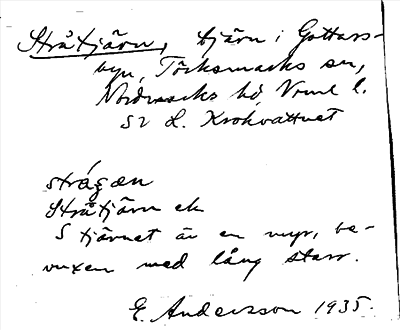 Stråtjärn, tjärn i Gottars-
byn, Töcksmarks sn,
Nordmarks hd, Vrml l.
SV L. Krokvattnet
Stråtjärn ek
S tjärnet är en myr, be-
vuxen med lång starr.
E. Andersson 1935.